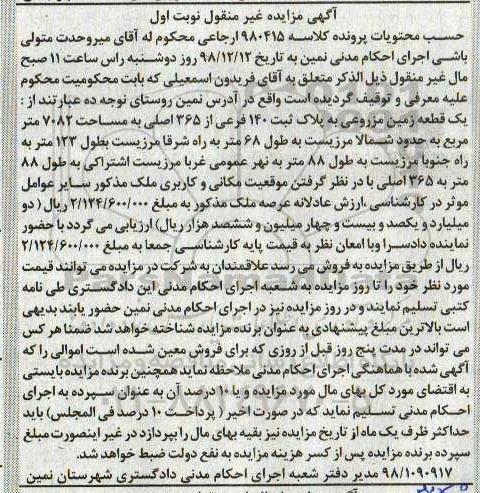 آگهی مزایده غیر منقول نوبت اول
حسب محتویات پرونده کلاسه ۹۸۰۴۱۵ ارجاعی محکوم له آقای میروحدت متولی
باشی اجرای احکام مدنی نمین به تاریخ ۹۸/۱۲/۱۲ روز دوشنبه راس ساعت ۱۱ صبح
مال غیر منقول ذیل الذکر متعلق به آقای فریدون اسمعیلی که بابت محکومیت محکوم
علیه معرفی و توقیف گردیده است واقع در آدرس نمین روستای نوجه ده عبارتند از :
یک قطعه زمین مزروعی به پلاک ثبت ۱۴۰ فرعی از ۳۶۵ اصلی به مساحت ۷۰۸۲ متر
مربع به حدود شمالا مرزیست به طول ۶۸ متر به راه شرقا مرزیست بطول ۱۲۳ متر به
راه جنوبا مرزیست به طول ۸۸ متر به نهر عمومی غربا مرزیست اشتراکی به طول ۸۸
متر به ۳۶۵ اصلی با در نظر گرفتن موقعیت مکانی و کاربری ملک مذکور سایر عوامل
موثر در کارشناسی ،ارزش عادلانه عرصه ملک مذکور به مبلغ ۲/۱۲۴/۶۰۰/۰۰۰ ریال ( دو
میلیارد و یکصد و بیست و چهار میلیون و ششصد هزار ریال) ارزیابی می گردد با حضور
نماینده دادسرا وبا امعان نظر به قیمت پایه کارشناسی جمعا به مبلغ ۲/۱۲۴/۶۰۰/۰۰۰
ریال از طریق مزایده به فروش می رسد علاقمندان به شرکت در مزایده می توانند قیمت
مورد نظر خود را تا روز مزایده به شعبه اجرای احکام مدنی این دادگستری طی نامه
کتبی تسلیم نمایند و در روز مزایده نیز در اجرای احکام مدنی نمین حضور یابند بدیهی
است بالاترین مبلغ پیشنهادی به عنوان برنده مزایده شناخته خواهد شد ضمنا هر کس
می تواند در مدت پنج روز قبل از روزی که برای فروش معین شده است اموالی را که
آگهی شده با هماهنگی اجرای احکام مدنی ملاحظه نماید همچنین برنده مزایده بایستی
به اقتضای مورد کل بهای مال مورد مزایده و یا ۱۰ درصد آن به عنوان سپرده به اجرای
احکام مدنی تسلیم نماید که در صورت اخیر ( پرداخت ۱۰ درصد فی المجلس) باید
حداکثر ظرف یک ماه از تاریخ مزایده نیز بقیه بهای مال را بپردازد در غیر اینصورت مبلغ
سپرده برنده مزایده پس از کسر هزینه مزایده به نفع دولت ضبط خواهد شد.
۹۸/۱۰۹۰۹۱۷ مدیر دفتر شعبه اجرای احکام مدنی دادگستری شهرستان نمین